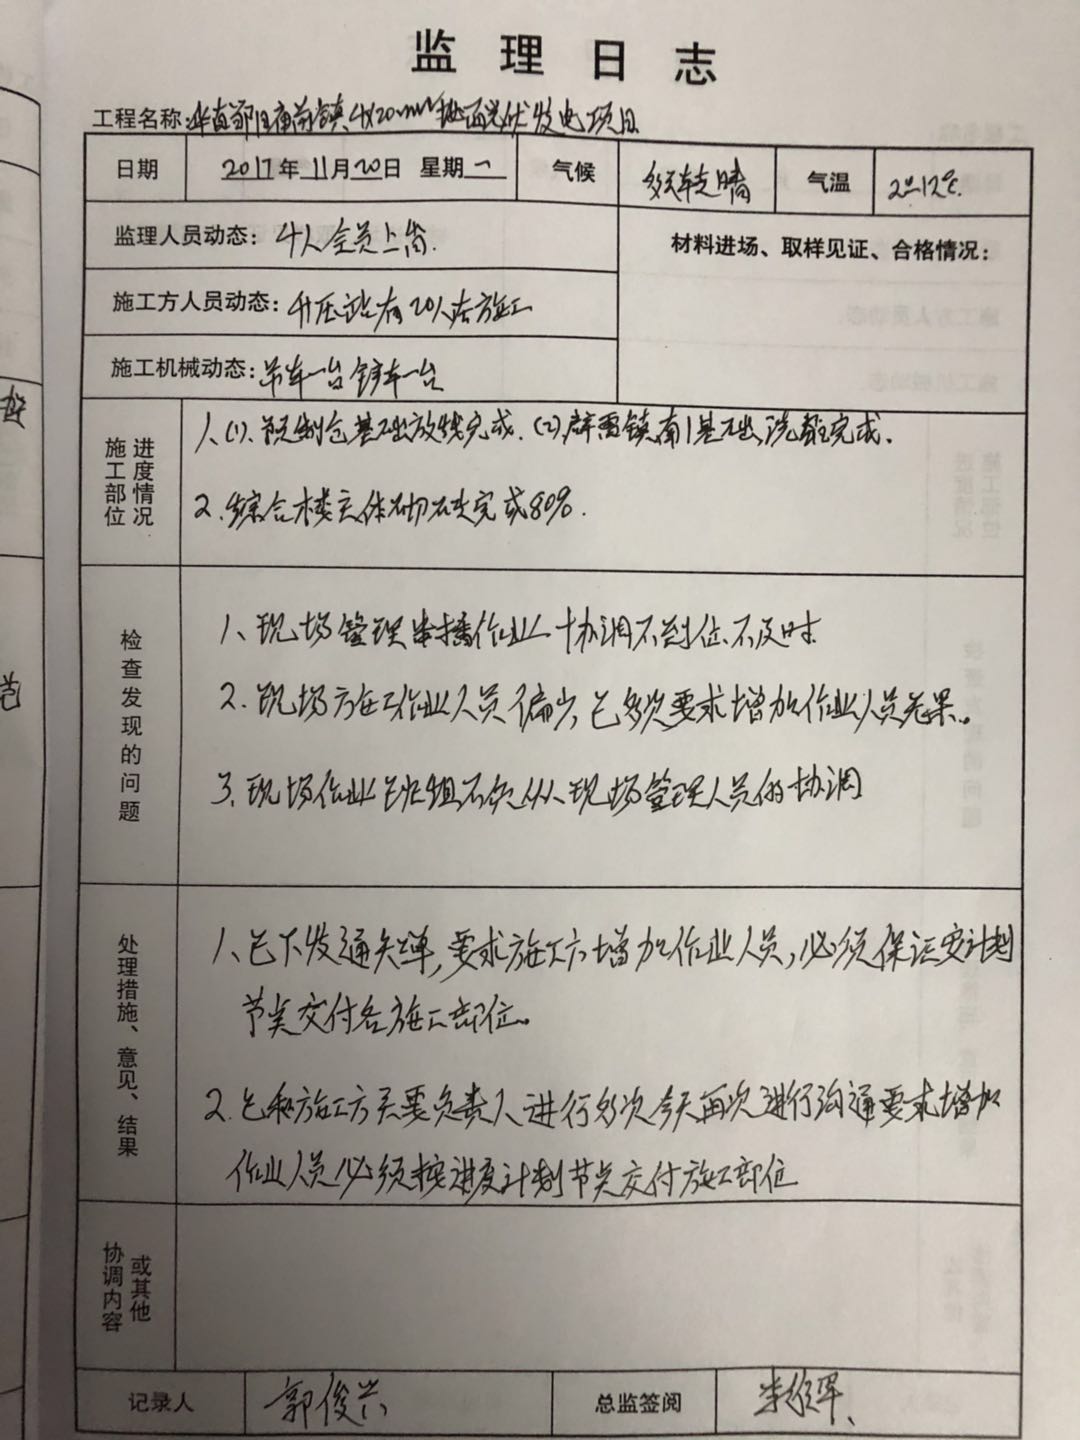 监理日志
工程名称：华直邹区庙前镇4×20MW地面光伏发电项目
日期 2017年11月20日 星期一 气候 多云转晴 气温 2~12℃
监理人员动态：4人全员上岗.
材料进场、取样见证、合格情况：
施工方人员动态：升压站有20人在施工
施工机械动态：吊车一台 铲车一台
施工部位 进度情况
1、(1)、预制仓基础放线完成. (2)、镇南1基础浇砼完成.
2、综合楼主体砌砖完成80%.
检查发现的问题
1、现场管理串播作业协调不到位、不及时.
2、现场施工作业人员偏少,已多次要求增加作业人员无果。
3、现场作业班组不领从现场管理人员的协调
处理措施、意见、结果
1、已下发通知单,要求施工方增加作业人员,必须保证安计划
节点交付各施工部位。
2、已和施工方主要负责人进行多次今天再次进行沟通要求增加
作业人员必须按进度计划节点交付施工部位
协调内容 或其他
记录人 郭俊兴 总监签阅